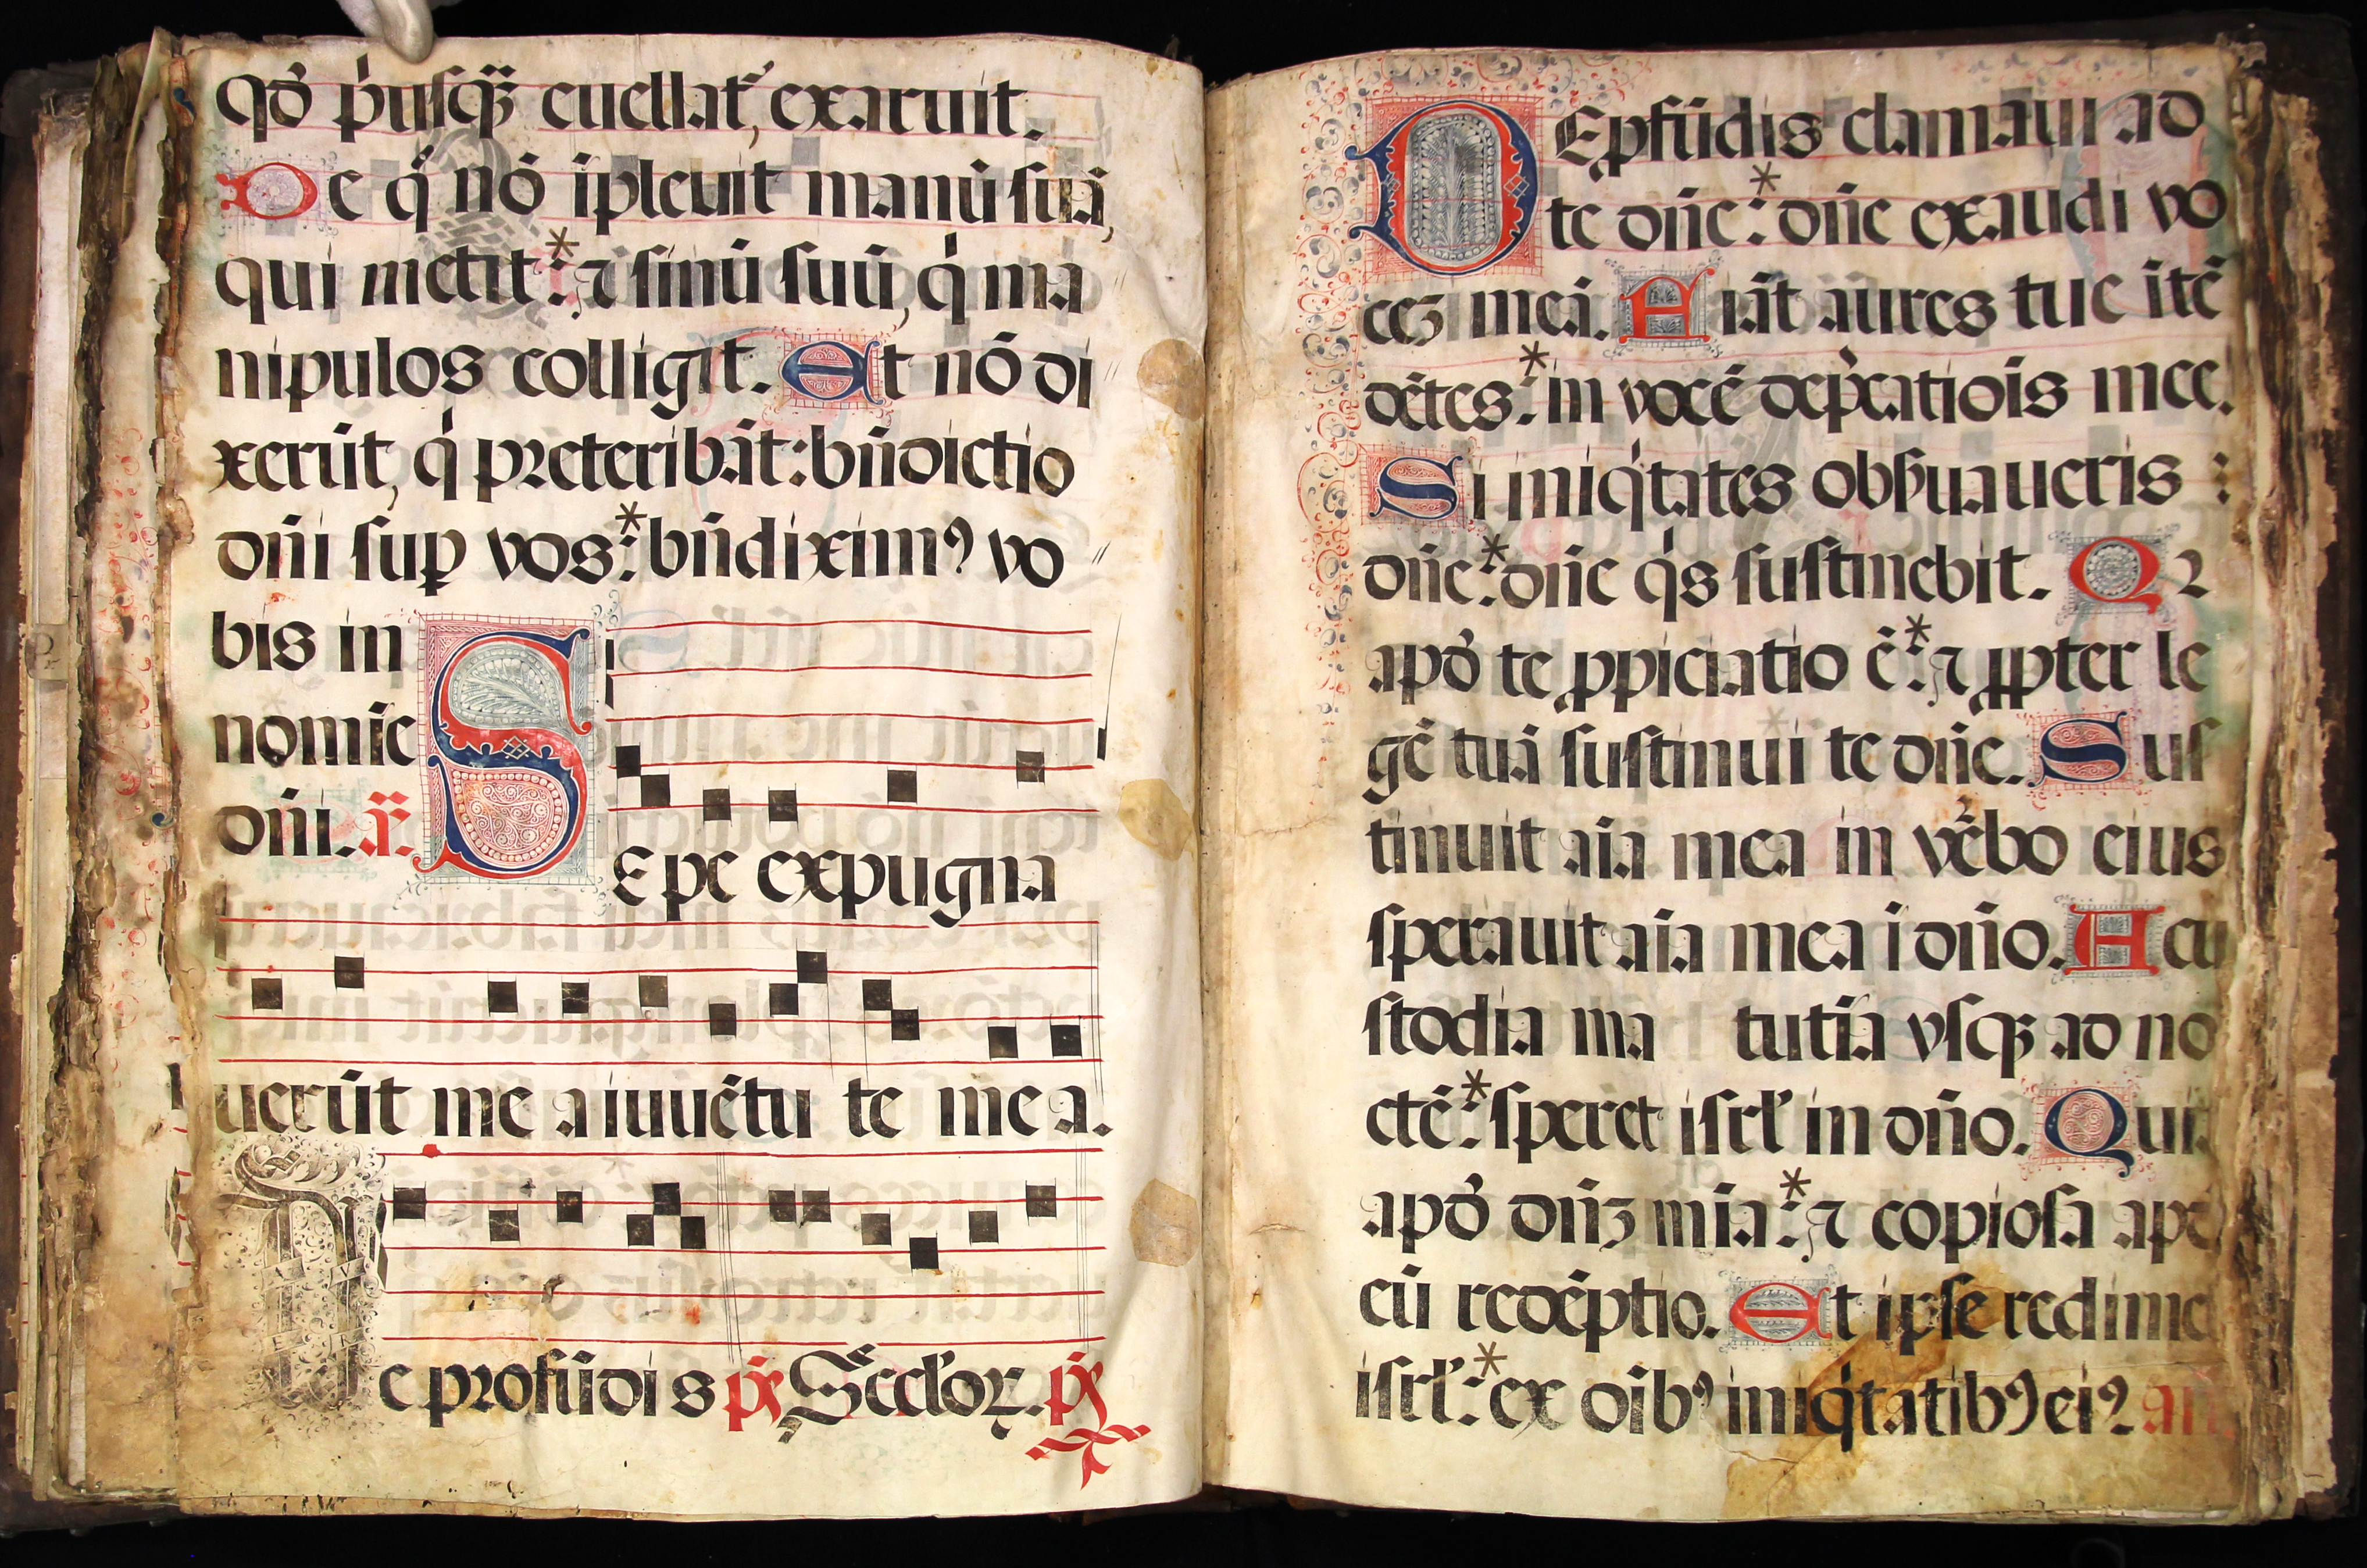 qđ pͥusqꝫ euellat᷑, exaruit.
De qͣ nō īpleuit manū suā,
qui metit:* ⁊ sinū suū, qͥ ma
nipulos colligit. Et nō di
xerūt, qͥ preteribāt: bn̄dictio
dn̄i sup vos:* bn̄diximꝰ vo
bis in
nomīe
dn̄i. ã.
SEpe expugna
uerūt me a iuuētu te me a.
De profūdis p̄s Secl'oꝝ. p̄s
DEpfūdis clamaui ad
te dn̄e:* dn̄e exaudi vo
cēꝫ meā. Fiāt aures tue ītē
dētes:* in vocē dep̄catiōis mee.
Si iniqͥtates obẜuaueris :
dn̄e:* dn̄e qͥs sustinebit. Qꝛ
apđ te ꝓpiciatio ē:* ⁊ ꝓpter le
gē tuā sustinui te dn̄e. Sus
tinuit aīa mea in v̄bo eius
sperauit aīa mea ī dn̄o. A cu
stodia ma tutīa vsqꝫ ad no
ctē:* speret isrl' in dn̄o. Quī
apđ dn̄ꝫ mīa:* ⁊ copiosa apđ
eū redēptio. Et ipse redime
isrl':* ex oībꝰ iniqͥtatibꝰ eiꝰ. an̄